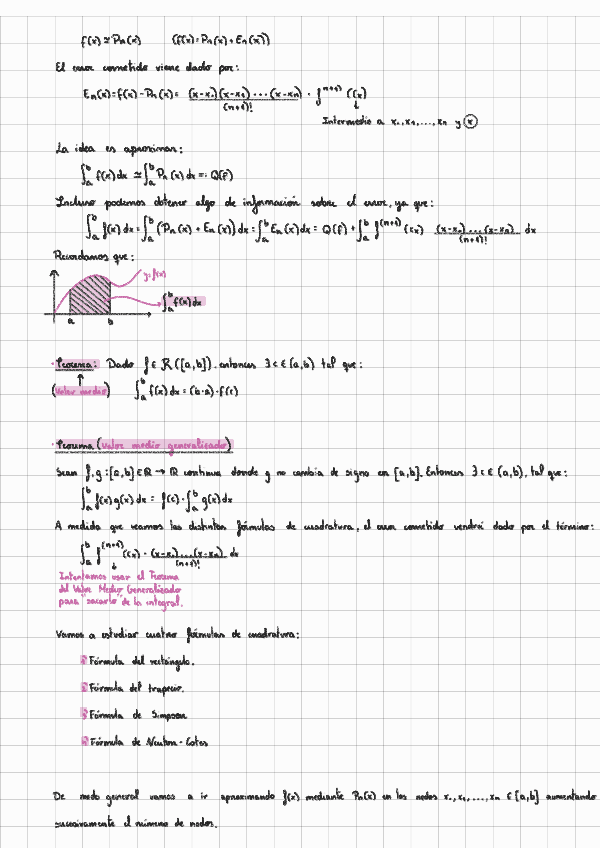 f(x) ≃ Pn(x) (f(x) = Pn(x) + En(x))
El error cometido viene dado por:
En(x) = f(x) - Pn(x) = (x-x₀)(x-x₁)...(x-xn) / (n+1)! · f^(n+1) (ξx)
Intermedio a x₀, x₁, ..., xn y x
La idea es aproximar:
∫_a^b f(x) dx ≃ ∫_a^b Pn(x) dx =: Q(f)
Incluso podemos obtener algo de información sobre el error, ya que:
∫_a^b f(x) dx = ∫_a^b (Pn(x) + En(x)) dx = ∫_a^b En(x) dx = Q(f) + ∫_a^b f^(n+1) (ξx) (x-x₀)...(x-xn) / (n+1)! dx
Recordamos que:
y=f(x)
∫_a^b f(x) dx
a b
· Teorema: Dado f ∈ R([a,b]), entonces ∃ c ∈ (a,b) tal que:
(Valor medio) ∫_a^b f(x) dx = (b-a)·f(c)
· Teorema (Valor medio generalizado)
Sean f,g: [a,b] ∈ R → R continua donde g no cambia de signo en [a,b]. Entonces ∃ c ∈ (a,b), tal que:
∫_a^b f(x) g(x) dx = f(c) · ∫_a^b g(x) dx
A medida que veamos las distintas fórmulas de cuadratura, el error cometido vendrá dado por el término:
∫_a^b f^(n+1) (ξx) · (x-x₀)...(x-xn) / (n+1)! dx
Intentamos usar el Teorema
del Valor Medio Generalizado
para "sacarlo" de la integral.
Vamos a estudiar cuatro fórmulas de cuadratura:
Fórmula del rectángulo.
Fórmula del trapecio.
Fórmula de Simpson
Fórmula de Newton-Cotes
De modo general vamos a ir aproximando f(x) mediante Pn(x) en los nodos x₀, x₁, ..., xn ∈ [a,b] aumentando
sucesivamente el número de nodos.